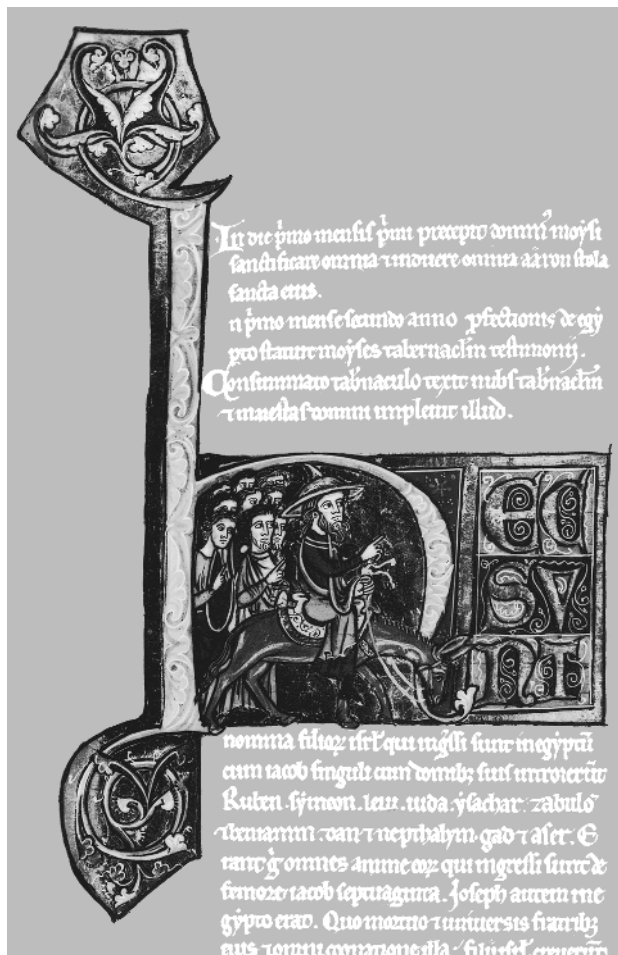 In die p̍mo mensis p̍mi precepto domini moysi
sanctificare omnia ⁊ induere omnia aaron stola
sancta eius.
n p̍mo mense secundo anno ꝓfectionis de egy
pto statuit moyses tabernaclm̄ testimonij.
Consummato tab̍naculo texit nubs tab̍naclm̄
⁊ maiestas domini impleuit illud.
HEC
SV
NT
nomina filioꝝ isrl̄ qui ingͥssi sunt in egyptū
cum iacob singuli cum domibꝫ suis introierūt
Ruben. symeon. leui. iuda. ysachar. zabulō
⁊beniamin .dan ⁊ nepthalym .gad ⁊ aser. E
rant gͦ omnes anime eoꝝ qui ingressi sunt de
femore iacob septuaginta. Joseph autem in e
gypto erat. Quo mortuo ⁊ uniuersis fratribꝫ
eius ⁊ omni cognatione illa . filij isrl̄ creuerūt